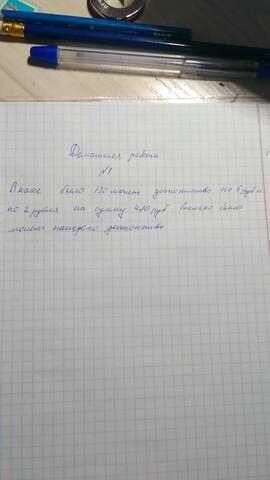 Домашняя работа
№1
В кассе было 120 монет достоинство по 5 руб и
по 2 рубля на сумму 440 руб сколько было
монет каждого достоинства